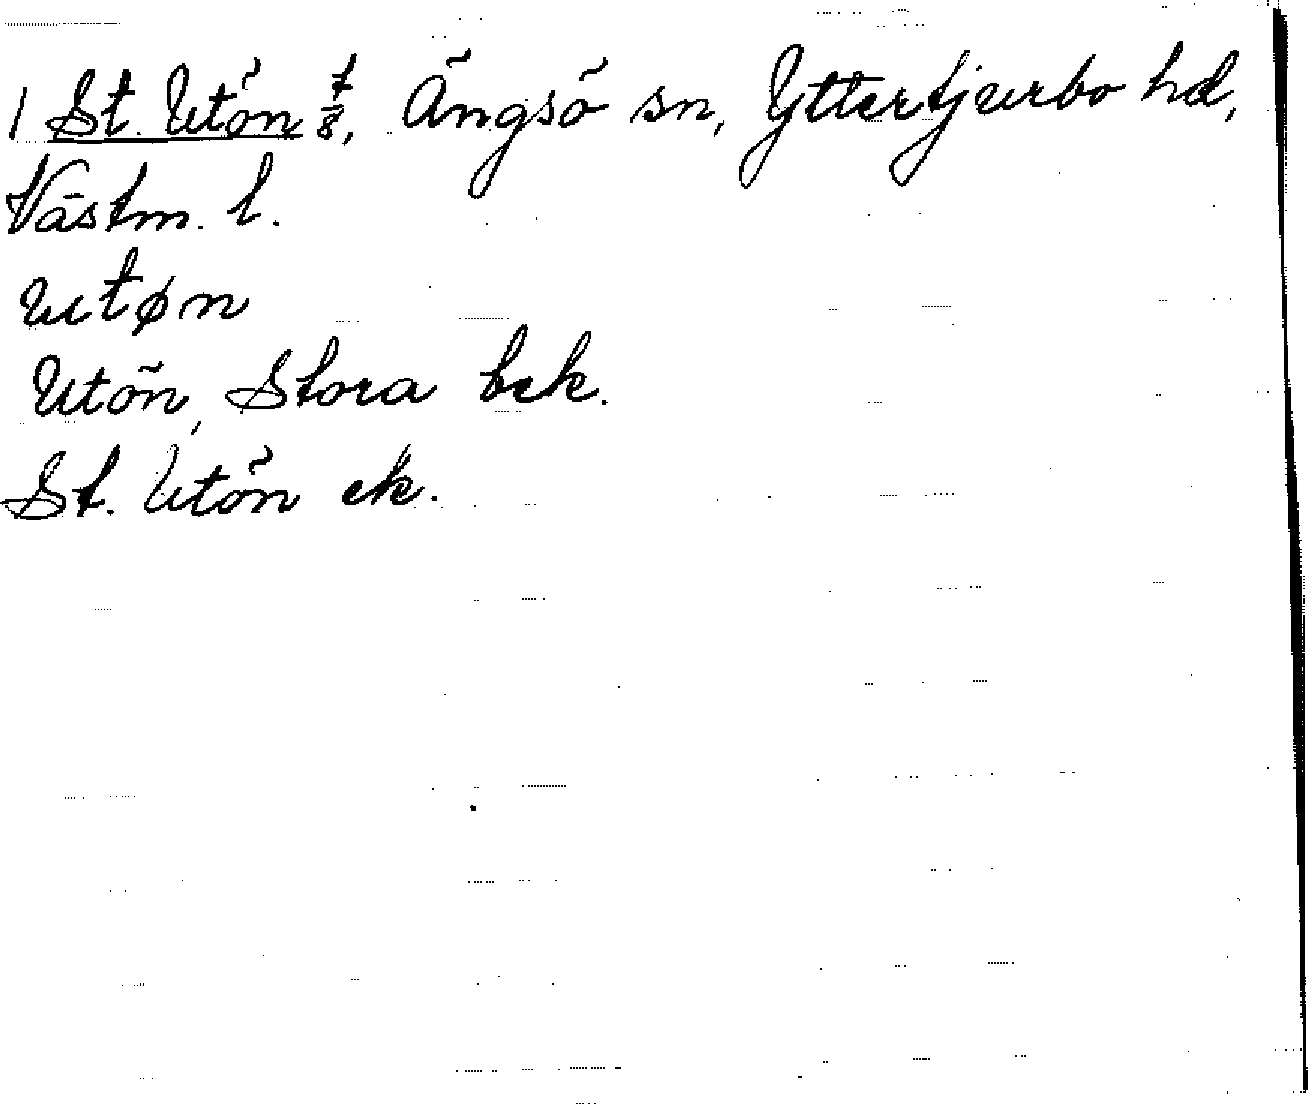 1 St. Utön t/8, Ängsö sn, Yttertjurbo hd,
Västm. l.
utøn
Utön, Stora bek.
St. Utön ek.